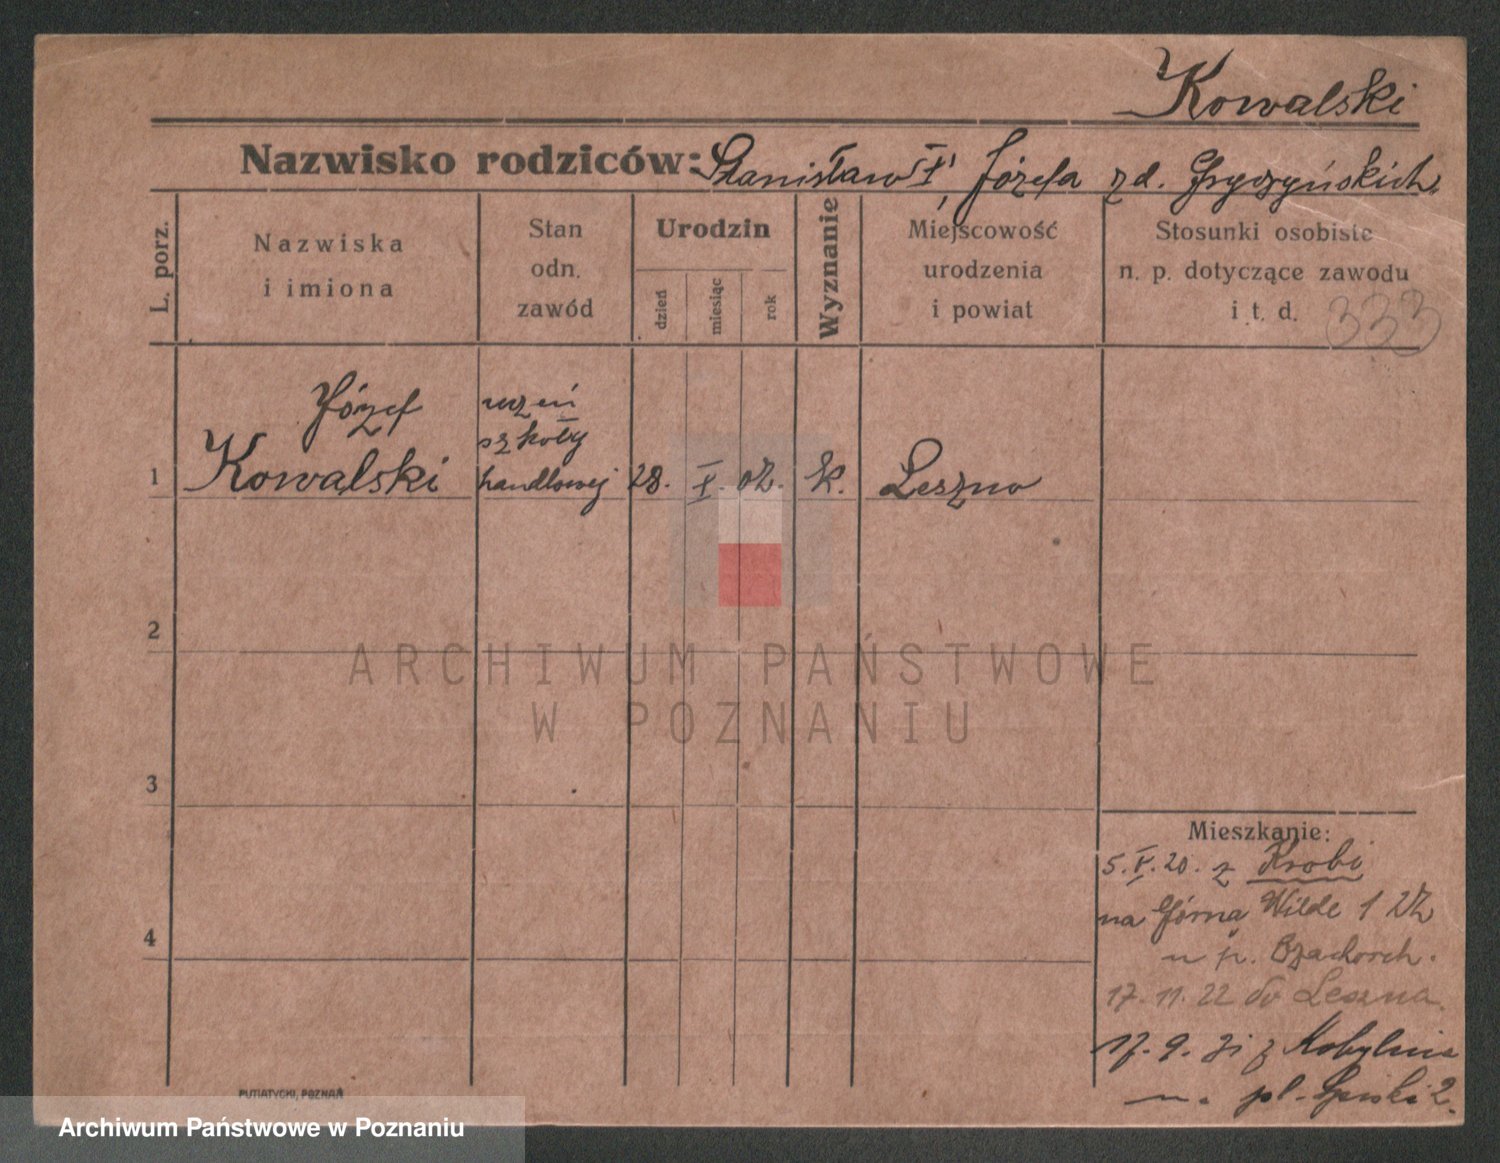 Kowalski
Nazwisko rodziców: Stanisław i Józefa zd. Gryczyńskich.
L. porz.
Nazwiska
i imiona
Stan
odn.
zawód
Urodzin
dzień
miesiąc
rok
Wyznanie
Miejscowość
urodzenia
i powiat
Stosunki osobiste
n. p. dotyczące zawodu
i t. d.
333
1
Józef
Kowalski
uczeń
szkoły
handlowej
28.
X.
02.
k.
Leszno
2
ARCHIWUM PAŃSTWOWE
W POZNANIU
3
4
Mieszkanie:
5. X. 20. z Krobi
na Górną Wildę 1
u p.
17. 11. 22 do Leszna.
17. 9. 31 z Kobylnic
2.
PUTIATYCKI, POZNAŃ
Archiwum Państwowe w Poznaniu